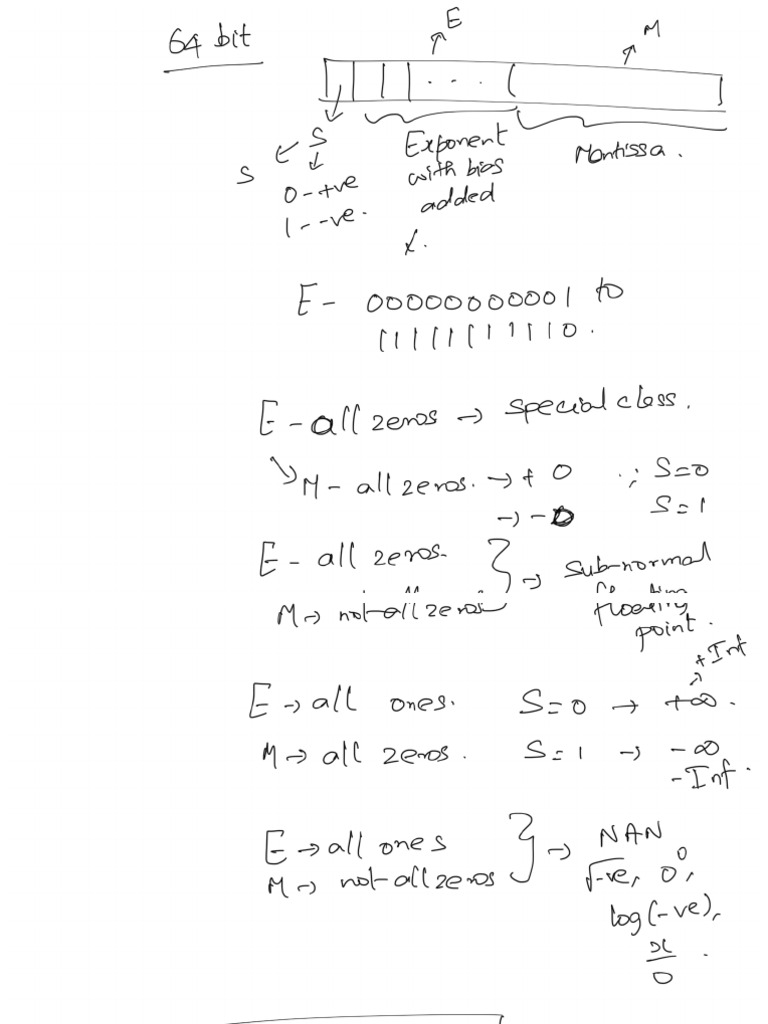 64 bit
E
M
S
S
0 - +ve
1 - -ve.
Exponent
with bias
added
Mantissa.
E - 00000000001 to
11111111110.
E - all zeros → special class.
M - all zeros. → + 0 ; S=0
→ - 0 S=1
E - all zeros.
M → not all zeros
→ sub-normal
floating
point.
+Inf
E → all ones. S=0 → +∞.
M → all zeros. S=1 → -∞
-Inf.
E → all ones
M → not all zeros
→ NAN
√-ve, 0^0,
log(-ve),
x/0.